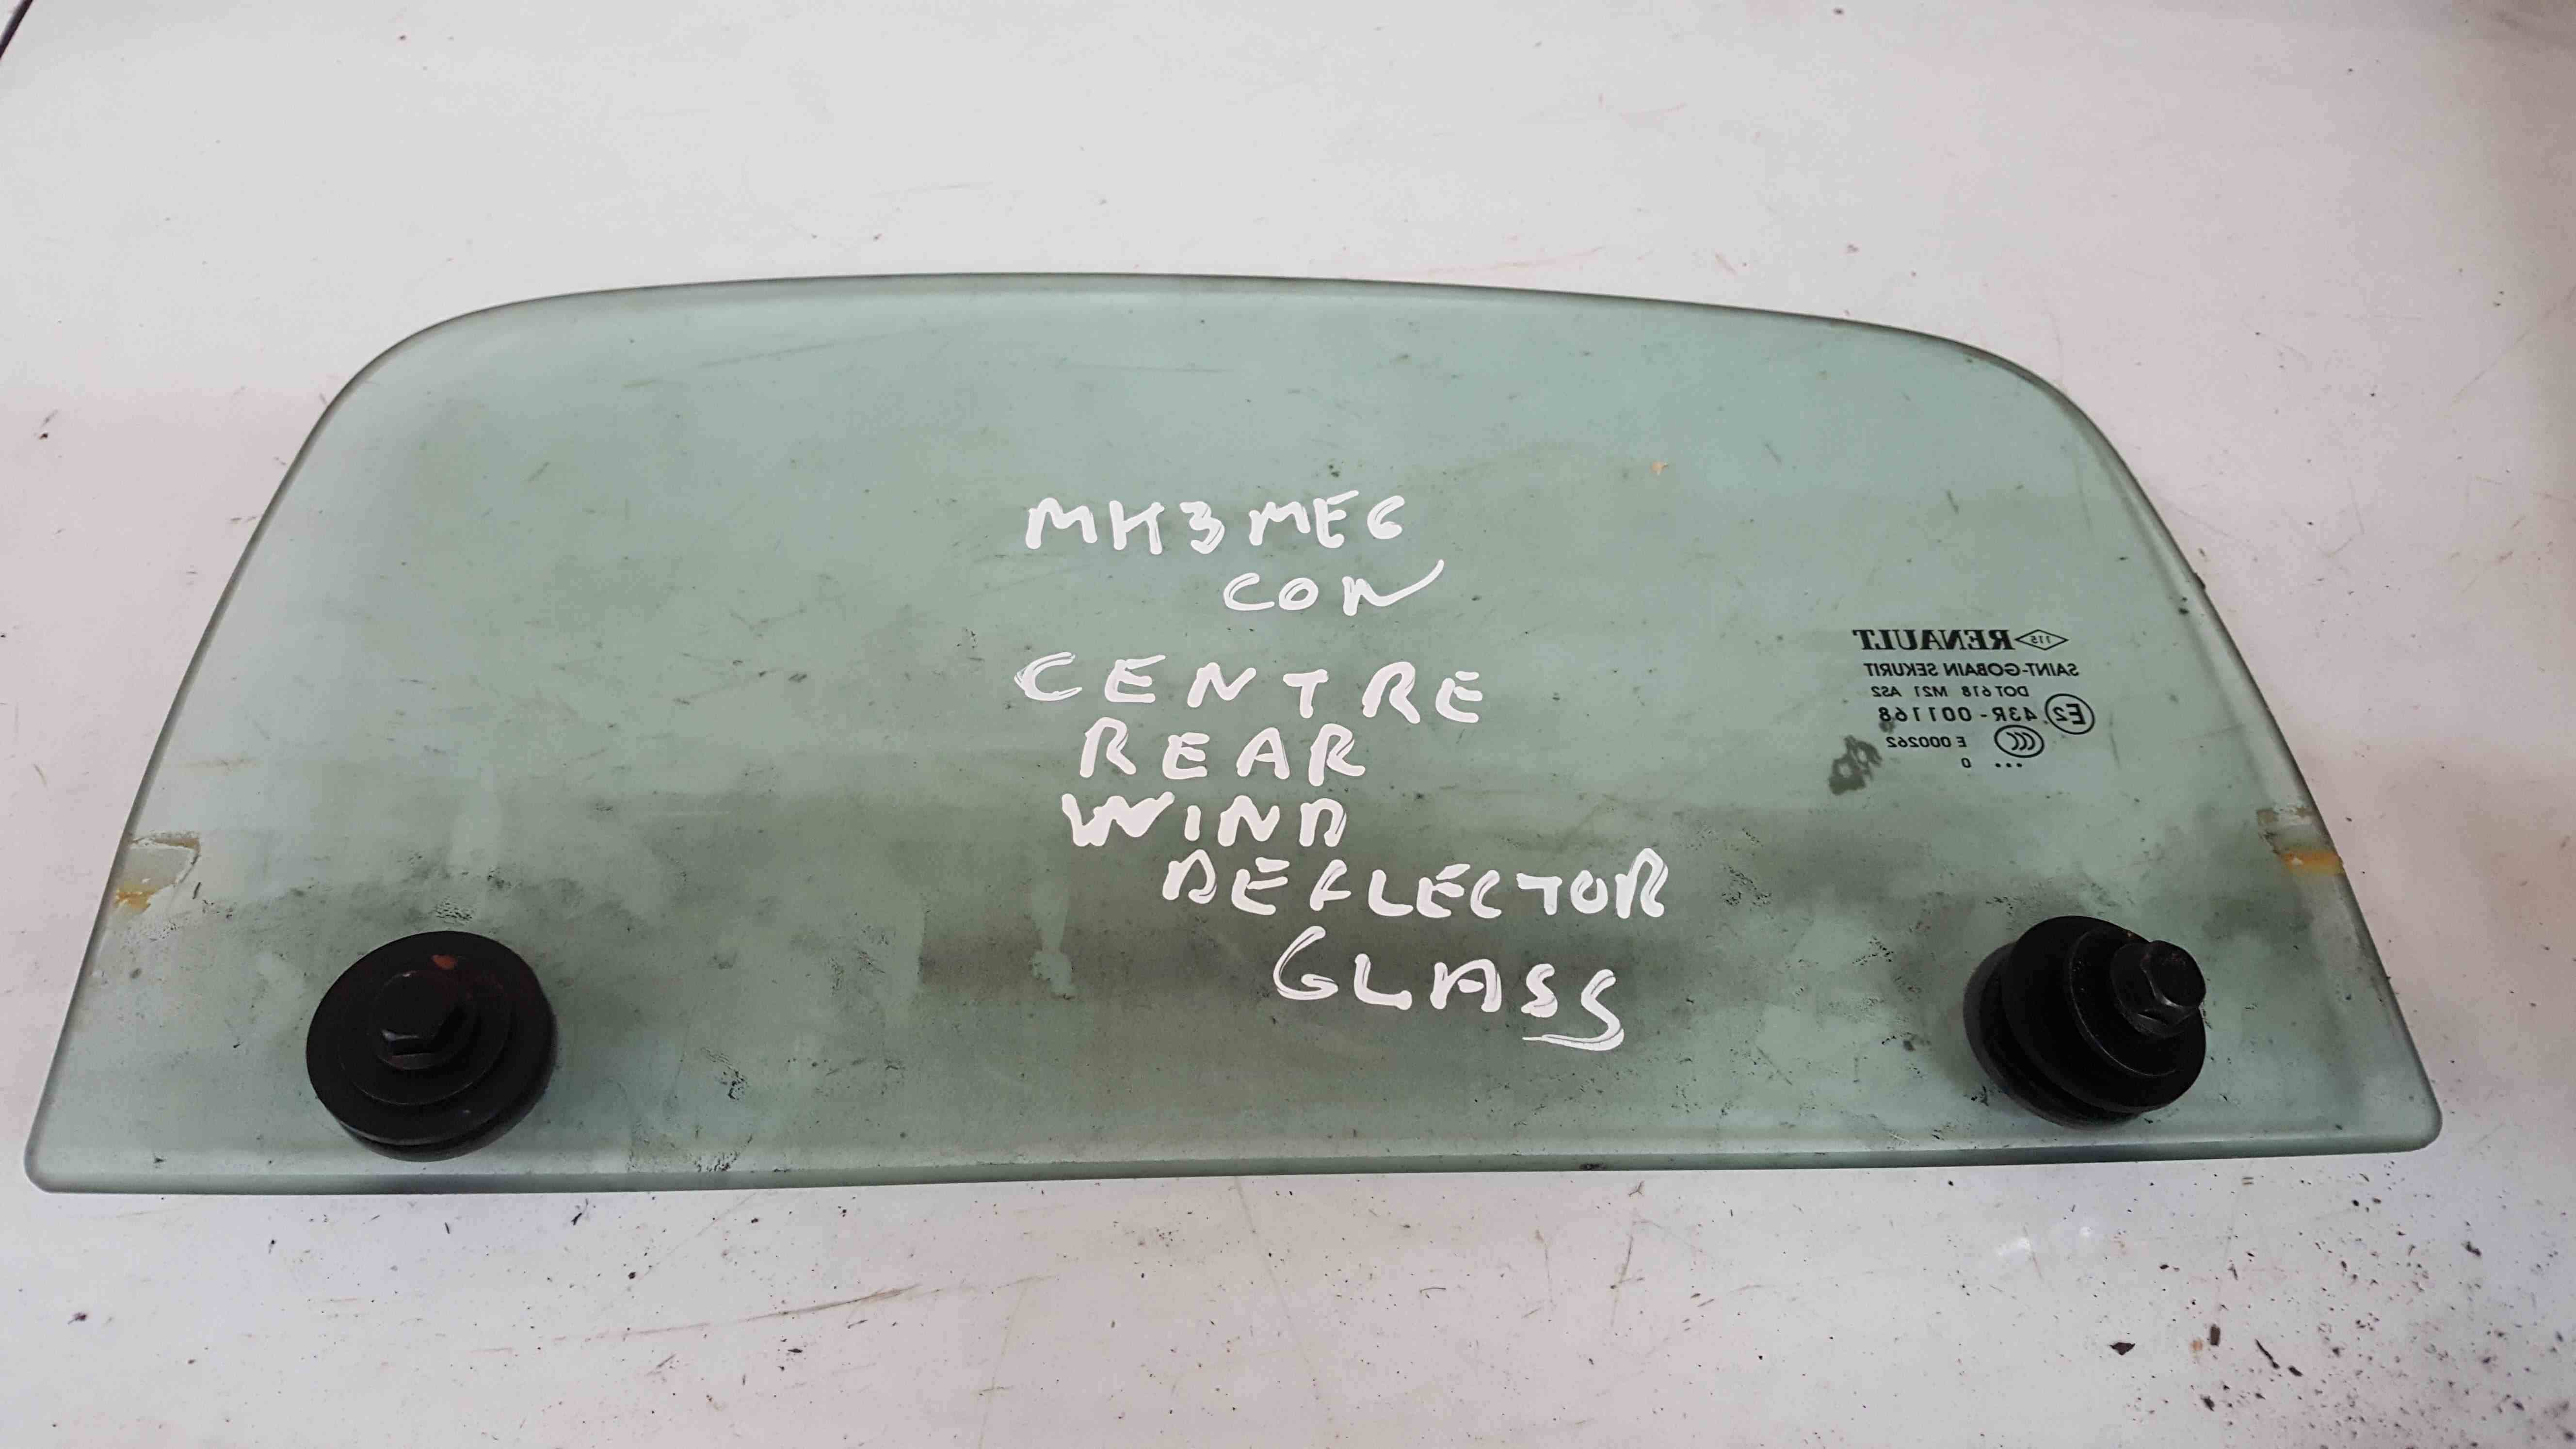 MK3 MEG
CON
CENTRE
REAR
WIND
DEFLECTOR
GLASS
115 RENAULT
SAINT-GOBAIN SEKURIT
DOT 618 M21 AS2
E2 43R-001168
CCC E 000262
... 0